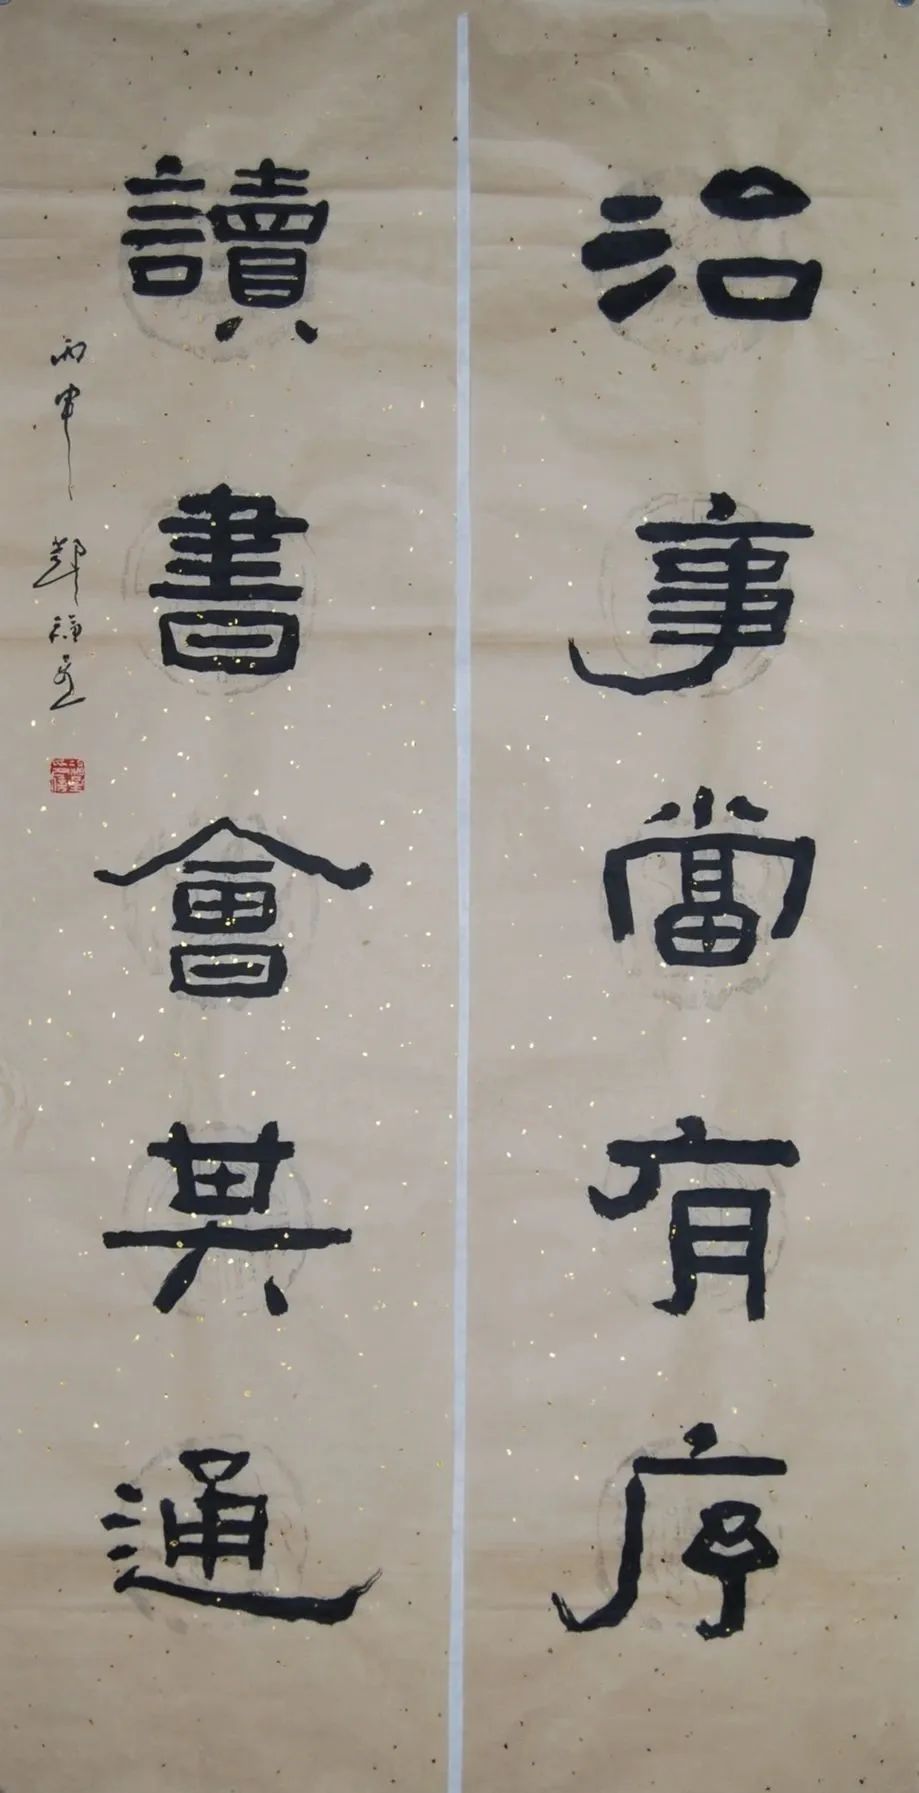 治事當有序
讀書會其通
丙申